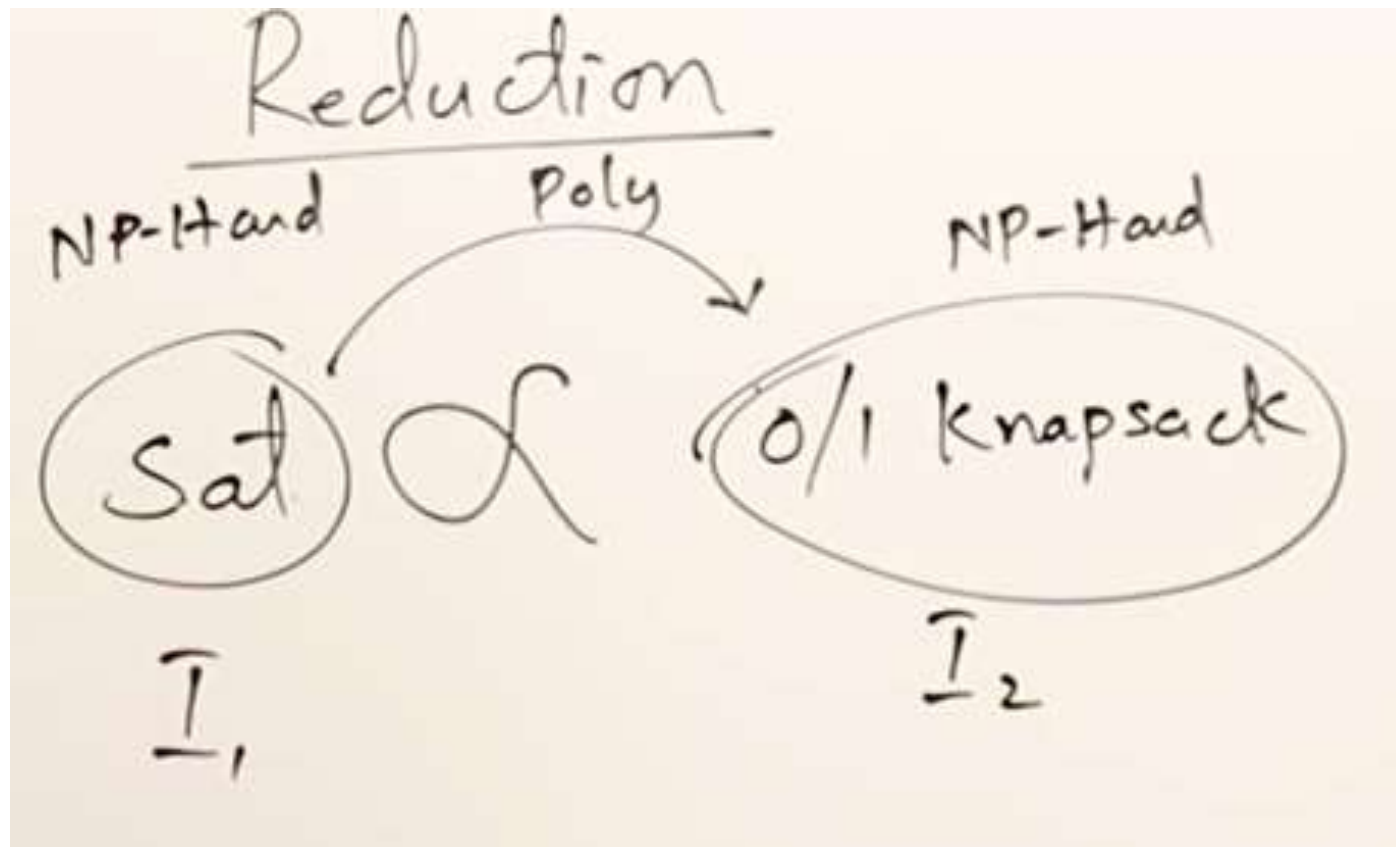 Reduction
NP-Hard Poly NP-Hard
Sat ∝ 0/1 Knapsack
I1 I2